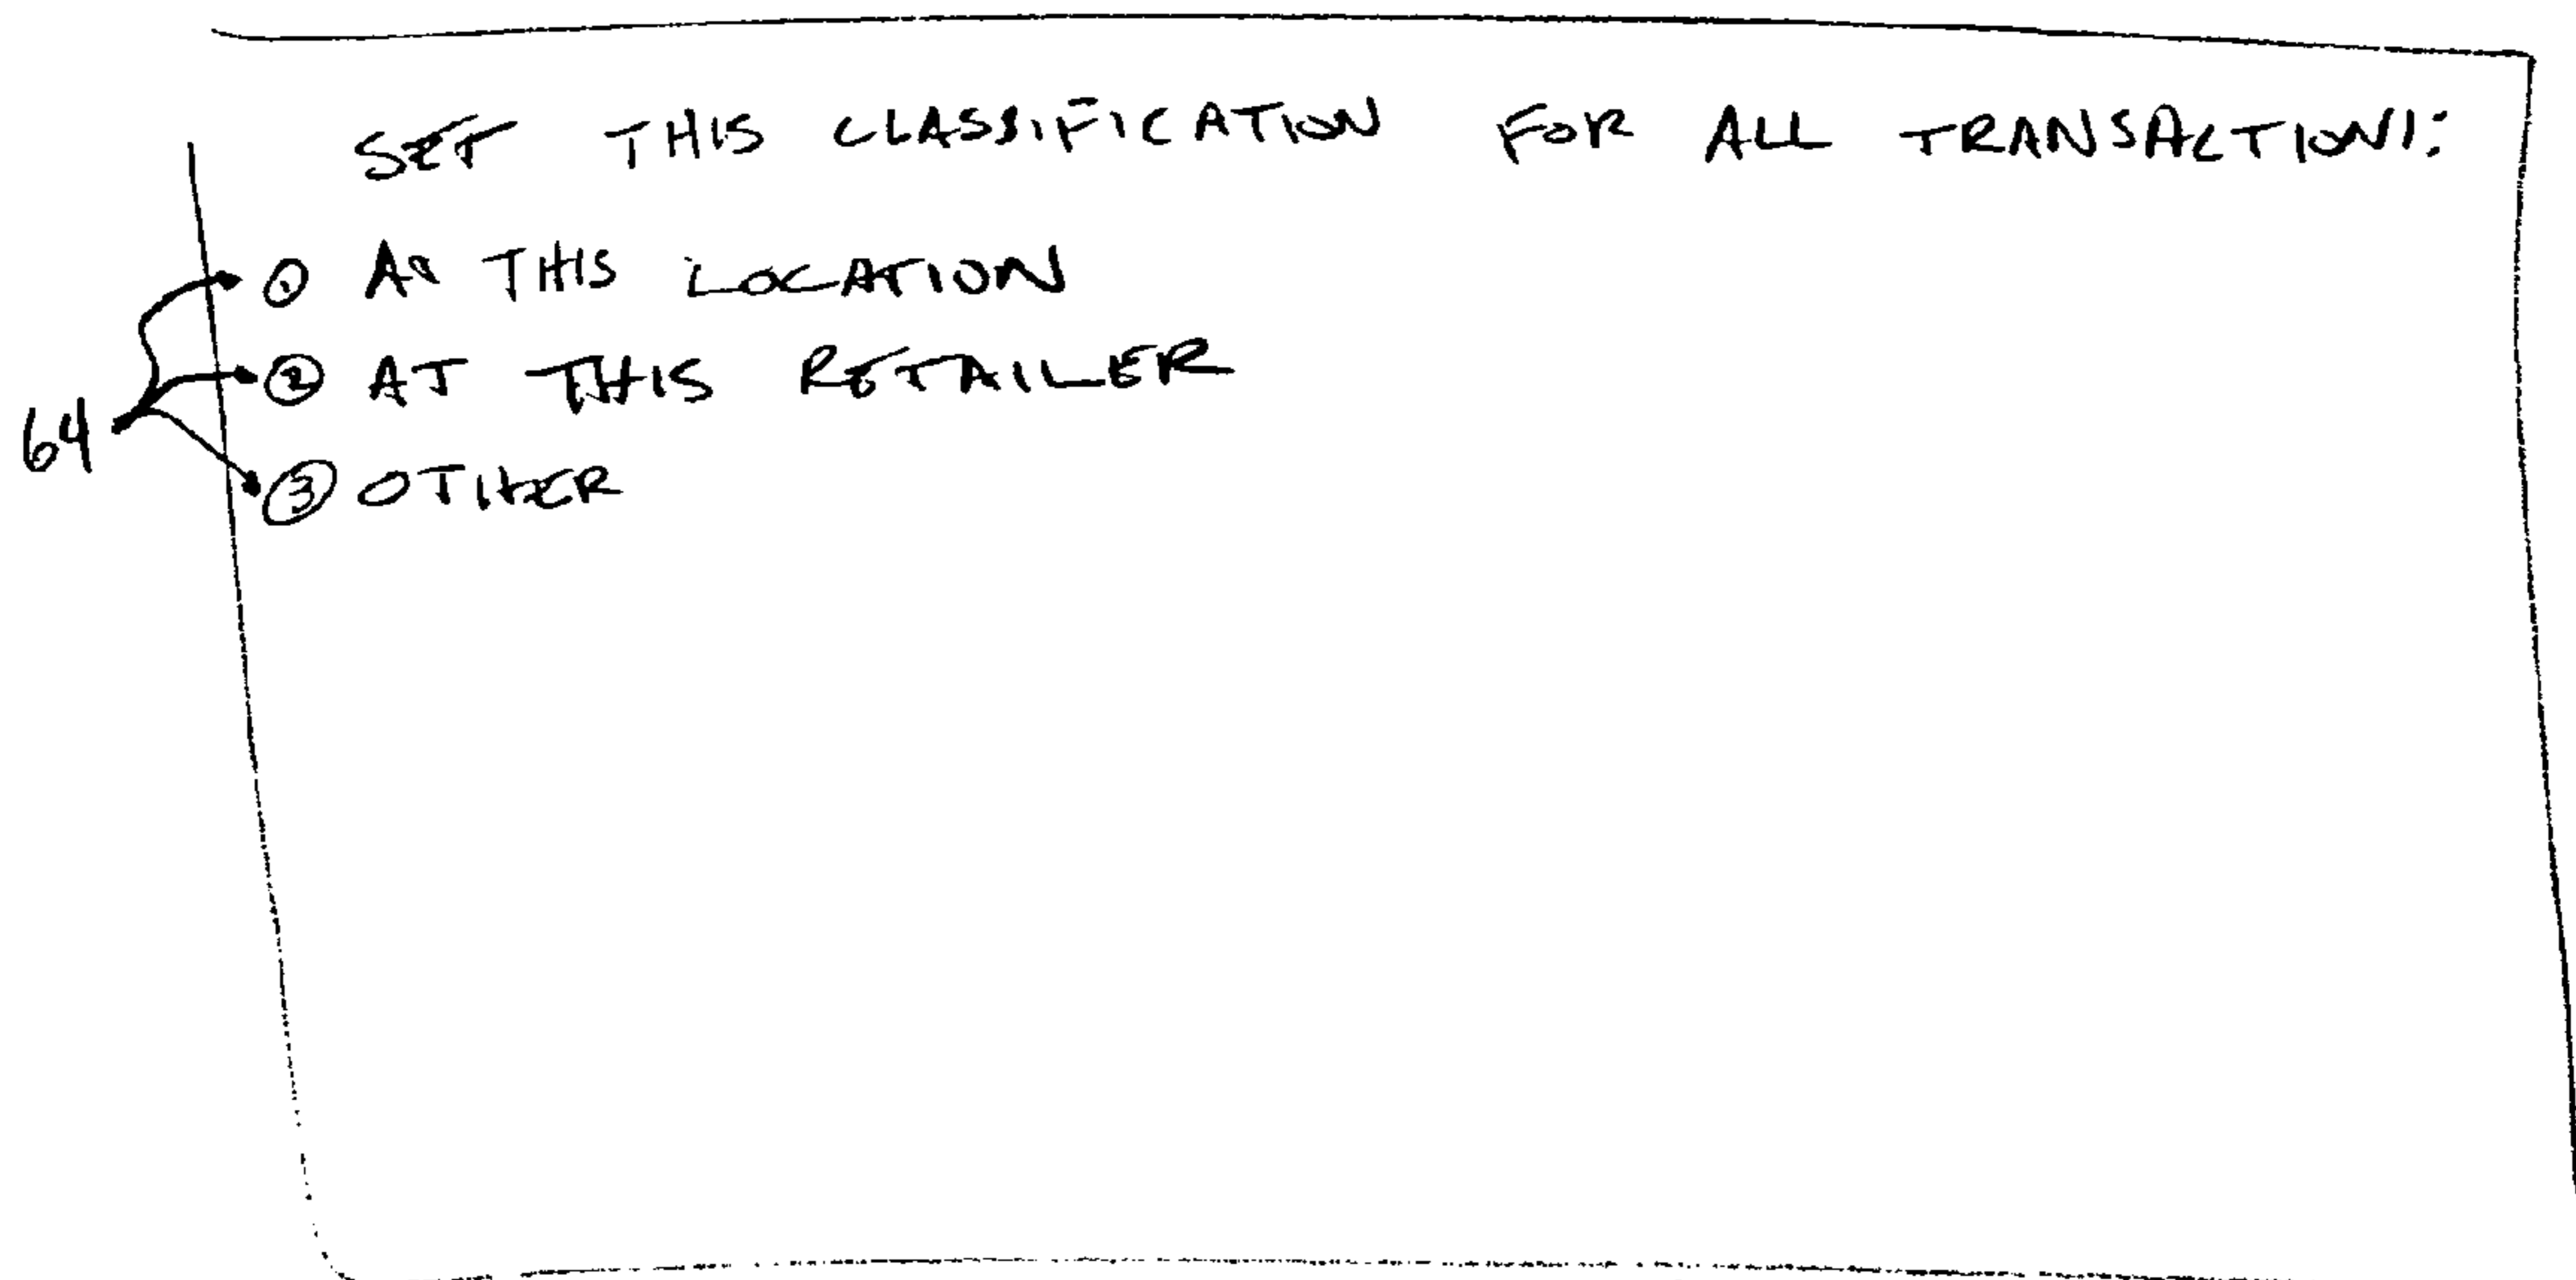 SET THIS CLASSIFICATION FOR ALL TRANSACTIONS:
① AT THIS LOCATION
② AT THIS RETAILER
64
③ OTHER